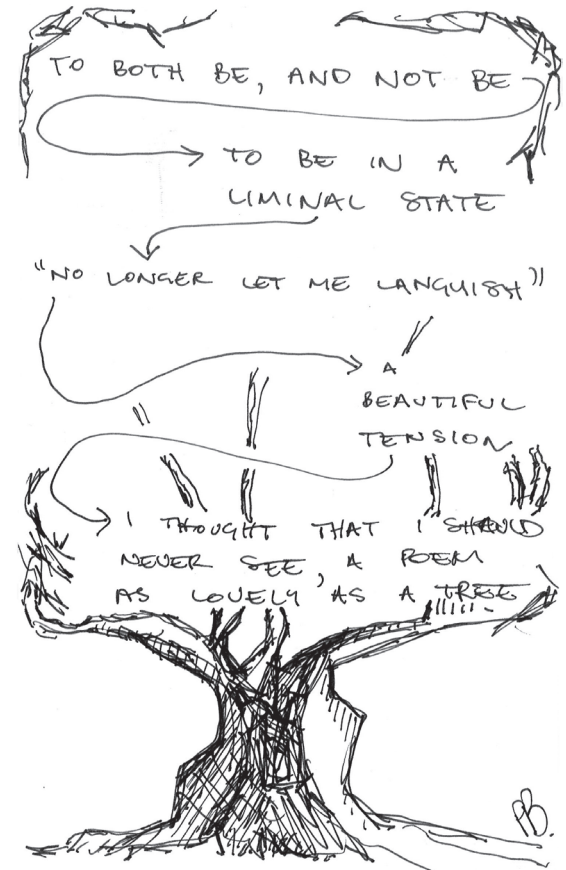 TO BOTH BE, AND NOT BE
TO BE IN A
LIMINAL STATE
"NO LONGER LET ME LANGUISH"
A
BEAUTIFUL
TENSION
I THOUGHT THAT I SHOULD
NEVER SEE, A POEM
AS LOVELY AS A TREE
PB.